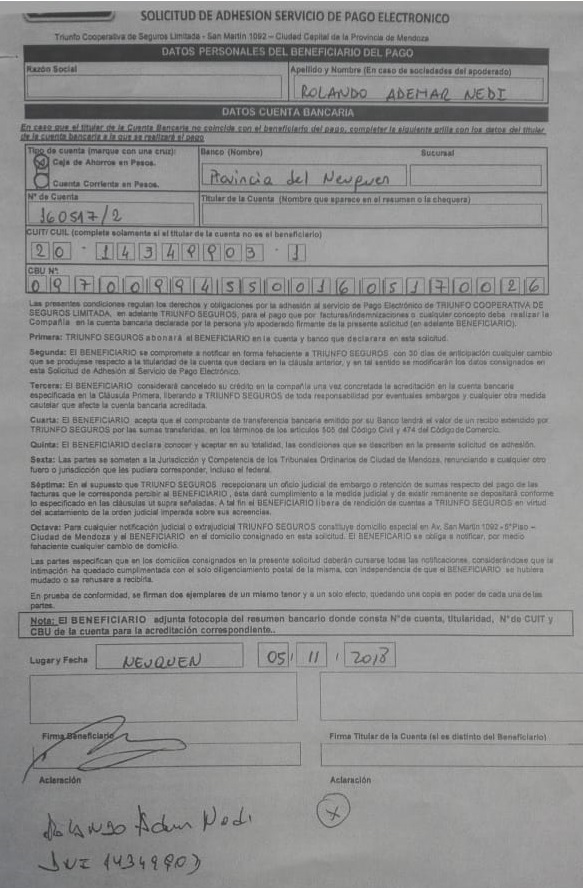 SOLICITUD DE ADHESION SERVICIO DE PAGO ELECTRONICO
Triunfo Cooperativa de Seguros Limitada - San Martin 1092 – Ciudad Capital de la Provincia de Mendoza
DATOS PERSONALES DEL BENEFICIARIO DEL PAGO
Razón Social
Apellido y Nombre (En caso de sociedades del apoderado)
ROLANDO ADEMAR NEDI
DATOS CUENTA BANCARIA
En caso que el titular de la Cuenta Bancaria no coincida con el beneficiario del pago, completar la siguiente grilla con los datos del titular
de la cuenta bancaria a la que se realizará el pago
Tipo de cuenta (marque con una cruz):
Caja de Ahorros en Pesos.
Cuenta Corriente en Pesos.
Banco (Nombre)
Sucursal
Provincia del Neuquen
N° de Cuenta
Titular de la Cuenta (Nombre que aparece en el resumen o la chequera)
160517/2
CUIT/ CUIL (complete solamente si el titular de la cuenta no es el beneficiario)
20 - 14349903 - 1
CBU N°:
0970099455001605170026
Las presentes condiciones regulan los derechos y obligaciones por la adhesión al servicio de Pago Electrónico de TRIUNFO COOPERATIVA DE
SEGUROS LIMITADA, en adelante TRIUNFO SEGUROS, para el pago que por facturas/indemnizaciones o cualquier concepto deba realizar la
Compañía en la cuenta bancaria declarada por la persona y/o apoderado firmante de la presente solicitud (en adelante BENEFICIARIO).
Primera: TRIUNFO SEGUROS abonará al BENEFICIARIO en la cuenta y banco que declara en esta solicitud.
Segunda: El BENEFICIARIO se compromete a notificar en forma fehaciente a TRIUNFO SEGUROS con 30 días de anticipación cualquier cambio
que se produjese respecto a la titularidad de la cuenta que declara en la cláusula anterior, y en tal sentido se modificarán los datos consignados en
esta Solicitud de Adhesión al Servicio de Pago Electrónico.
Tercera: El BENEFICIARIO considerará cancelado su crédito en la compañía una vez concretada la acreditación en la cuenta bancaria
especificada en la Cláusula Primera, liberando a TRIUNFO SEGUROS de toda responsabilidad por eventuales embargos y cualquier otra medida
cautelar que afecte la cuenta bancaria acreditada.
Cuarta: El BENEFICIARIO acepta que el comprobante de transferencia bancaria emitido por su Banco tendrá el valor de un recibo extendido por
TRIUNFO SEGUROS por las sumas transferidas, en los términos de los artículos 505 del Código Civil y 474 del Código de Comercio.
Quinta: El BENEFICIARIO declara conocer y aceptar en su totalidad, las condiciones que se describen en la presente solicitud de adhesión.
Sexta: Las partes se someten a la Jurisdicción y Competencia de los Tribunales Ordinarios de Ciudad de Mendoza, renunciando a cualquier otro
fuero o jurisdicción que les pudiera corresponder, incluso el federal.
Séptima: En el supuesto que TRIUNFO SEGUROS recepcionara un oficio judicial de embargo o retención de sumas respecto del pago de las
facturas que le corresponda percibir al BENEFICIARIO, ésta dará cumplimiento a la medida judicial y de existir remanente se depositará conforme
lo especificado en las cláusulas ut supra señaladas. A tal fin el BENEFICIARIO libera de rendición de cuentas a TRIUNFO SEGUROS en virtud
del acatamiento de la orden judicial imperada sobre sus acreencias.
Octava: Para cualquier notificación judicial o extrajudicial TRIUNFO SEGUROS constituye domicilio especial en Av. San Martin 1092 - 5°Piso –
Ciudad de Mendoza y el BENEFICIARIO en el domicilio consignado en esta solicitud. El BENEFICIARIO se obliga a notificar, por medio
fehaciente cualquier cambio de domicilio.
Las partes especifican que en los domicilios consignados en la presente solicitud deberán cursarse todas las notificaciones, considerándose que la
intimación ha quedado cumplimentada con el solo diligenciamiento postal de la misma, con independencia de que el BENEFICIARIO se hubiera
mudado o se rehusare a recibirla.
En prueba de conformidad, se firman dos ejemplares de un mismo tenor y a un solo efecto, quedando una copia en poder de cada una de las
partes.
Nota: El BENEFICIARIO adjunta fotocopia del resumen bancario donde consta N°de cuenta, titularidad, N°de CUIT y
CBU de la cuenta para la acreditación correspondiente..
Lugar y Fecha
NEUQUEN
05/ 11 / 2018
Firma Beneficiario
Firma Titular de la Cuenta (si es distinto del Beneficiario)
Aclaración
Aclaración
X
Rolando Adem Nedi
DNI 14349903